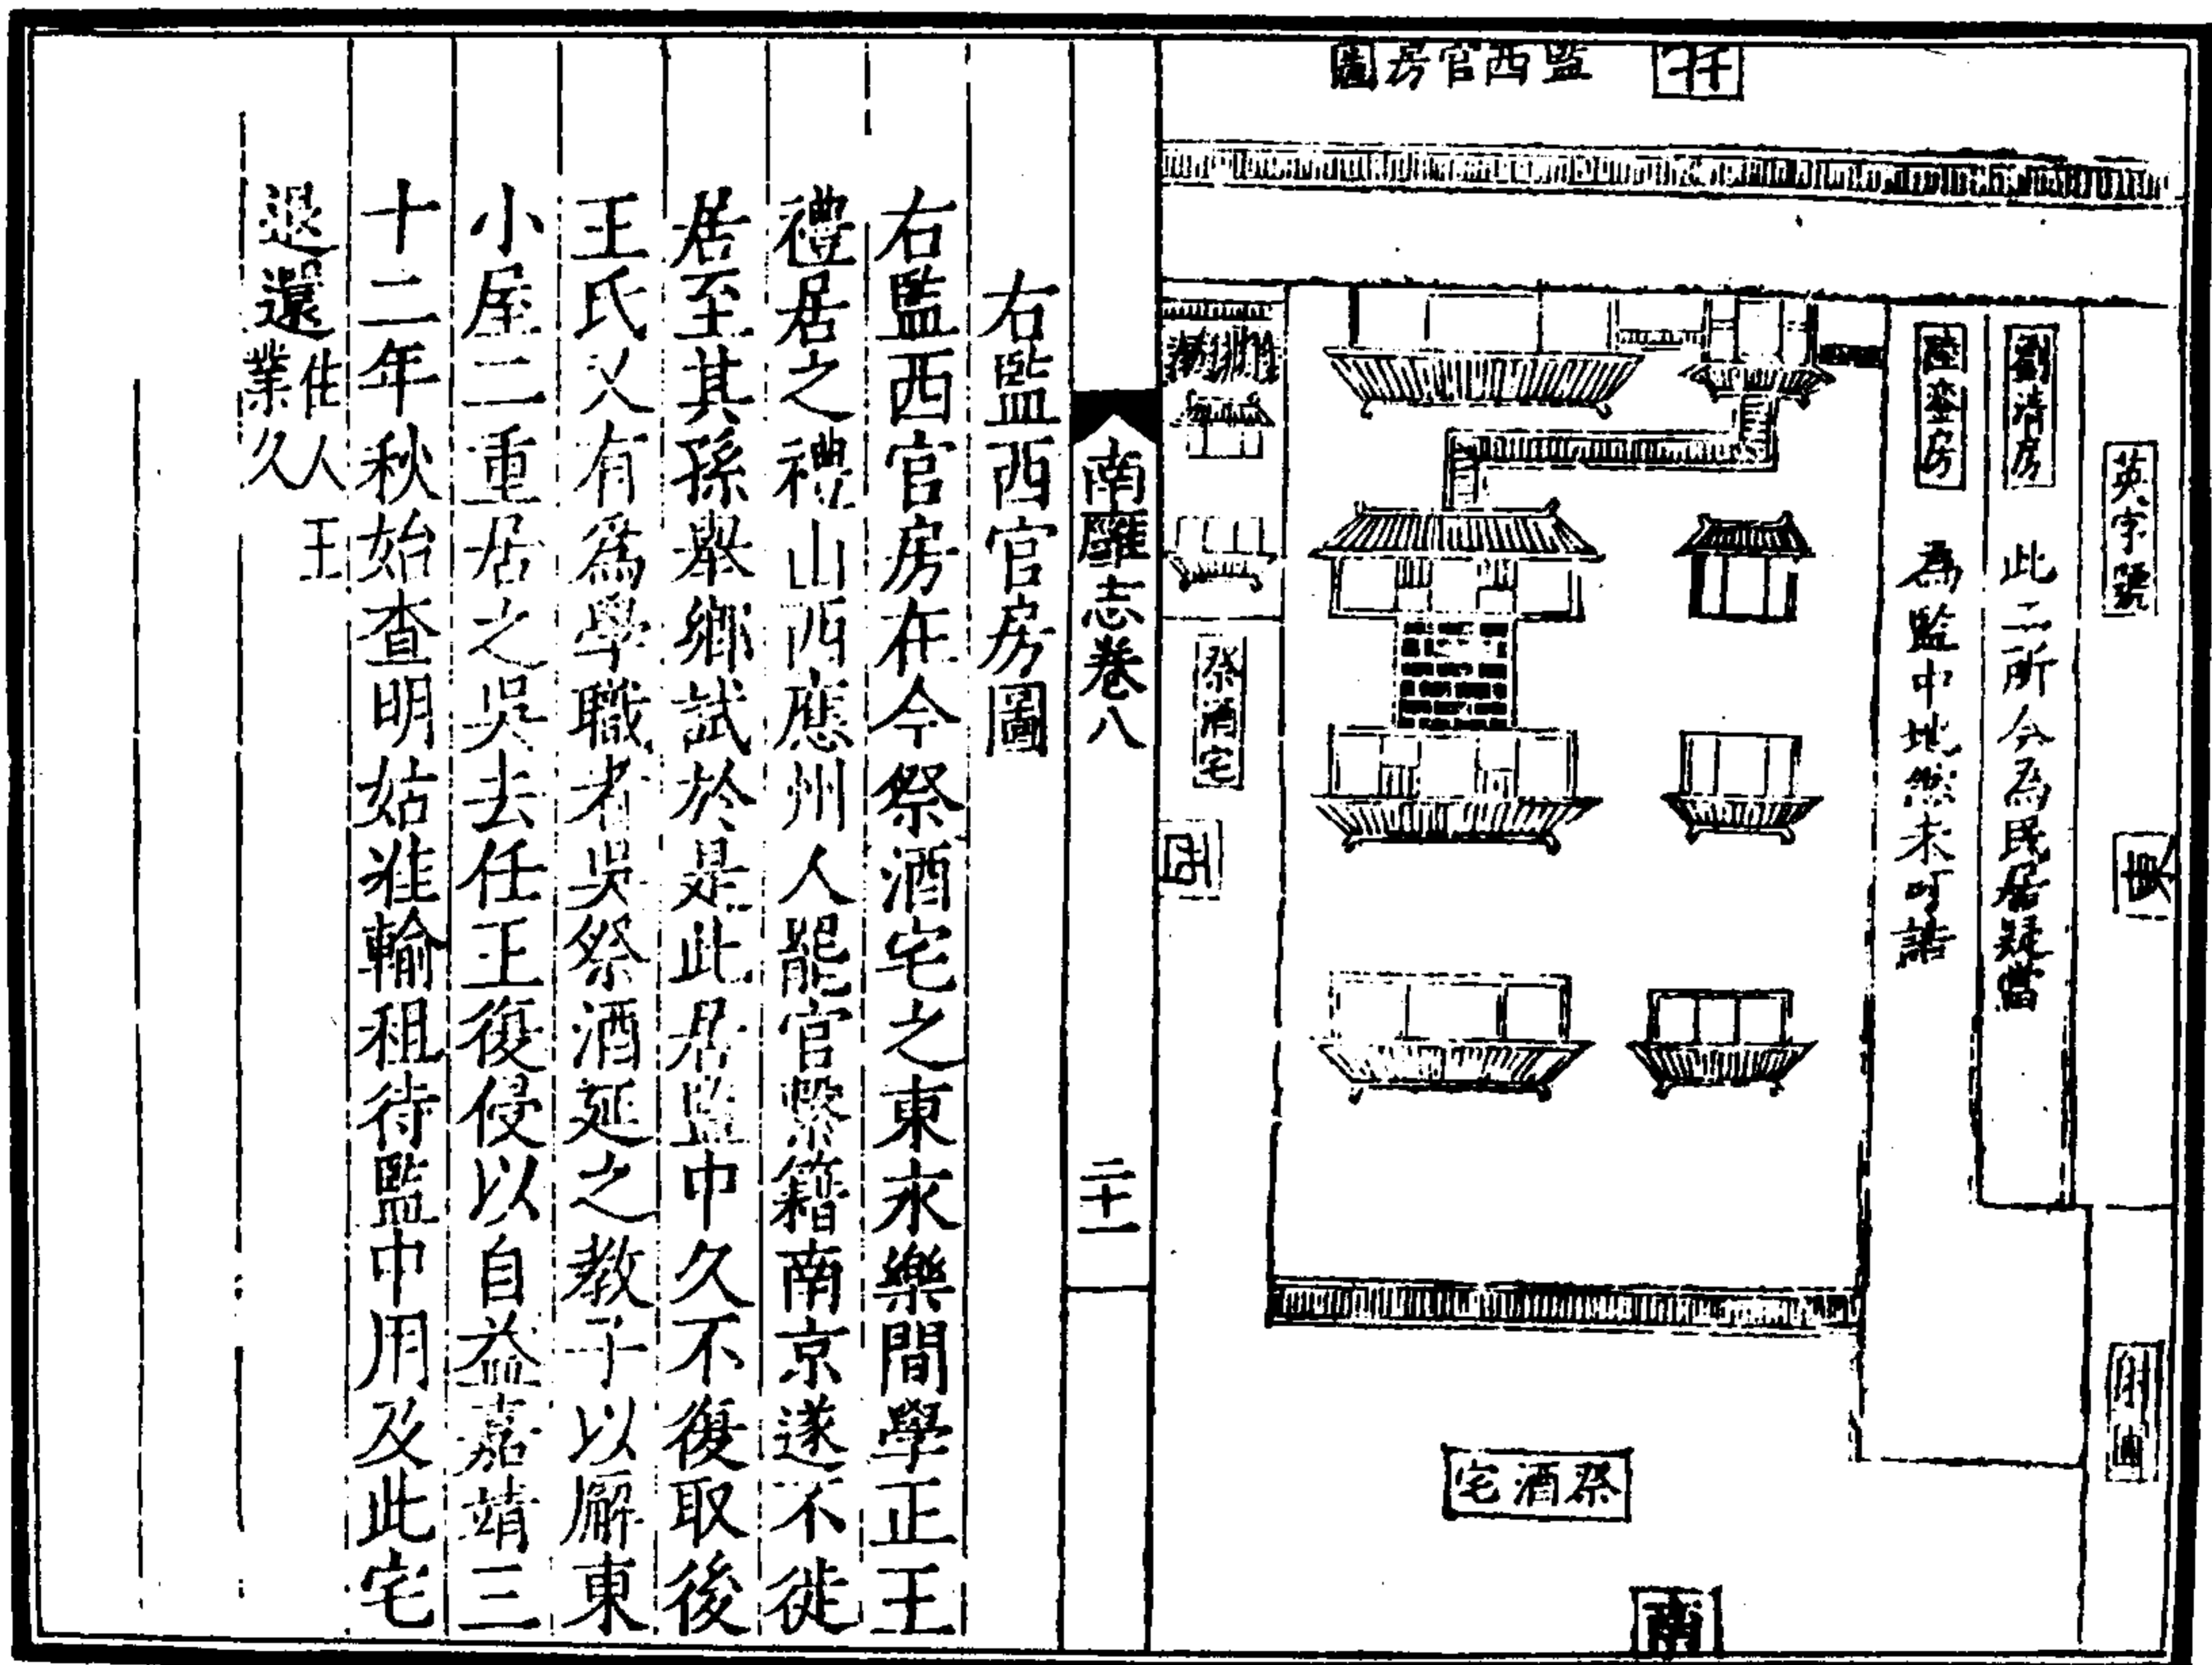 監西官房圖
北
英字號
劉清房
此二所今為民居疑當
陸瑩房
為監中地然未可詰
東
射圃
祭酒宅
西
祭酒宅
南
南廱志卷八
二十一
右監西官房圖
右監西官房在今祭酒宅之東永樂間學正王
禮居之禮山西應州人罷官繫籍南京遂不徙
居至其孫舉鄉試於是此居監中久不復取後
王氏又有為學職者吳祭酒延之教子以廨東
小屋二重居之吳去任王復侵以自益嘉靖三
十二年秋始查明姑准輸租待監中用及此宅
退還住人王
業久